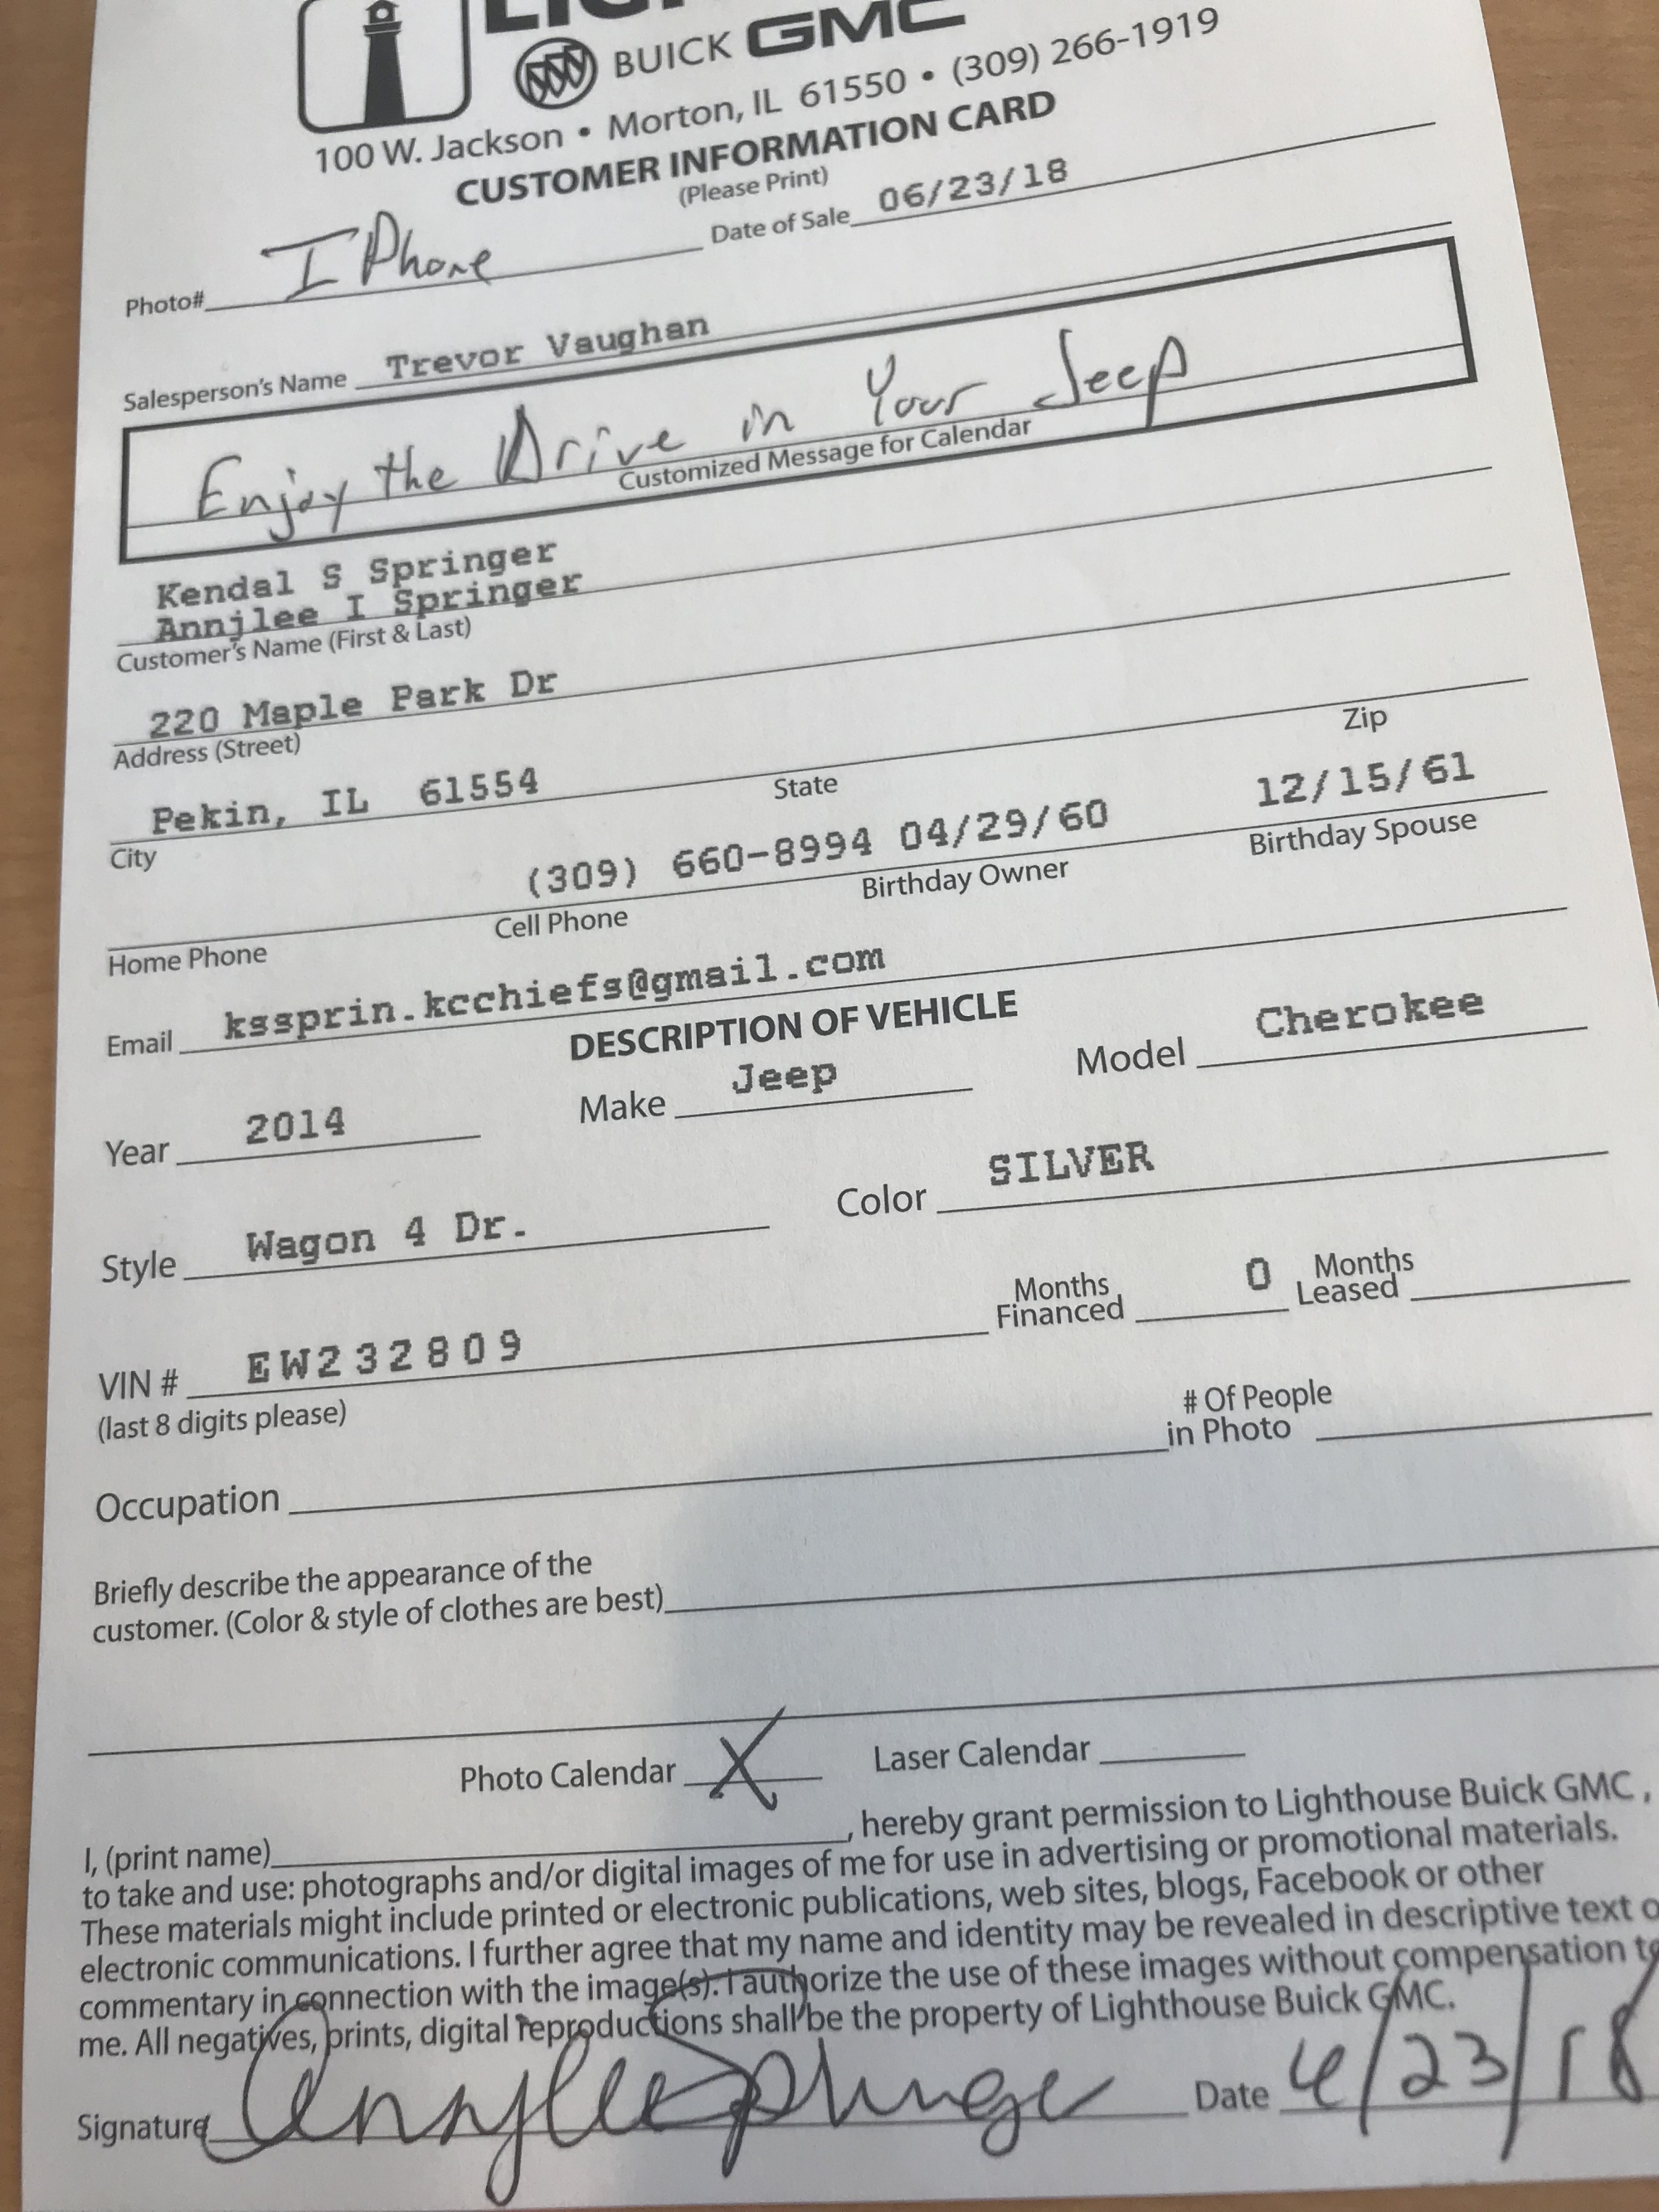 BUICK GMC
100 W. Jackson • Morton, IL 61550 • (309) 266-1919
CUSTOMER INFORMATION CARD
(Please Print)
Photo# I Phone Date of Sale 06/23/18
Salesperson's Name Trevor Vaughan
Enjoy the Drive in Your Jeep
Customized Message for Calendar
Kendal S Springer
Annjlee I Springer
Customer's Name (First & Last)
220 Maple Park Dr
Address (Street)
Pekin, IL 61554
City State Zip
(309) 660-8994 04/29/60 12/15/61
Home Phone Cell Phone Birthday Owner Birthday Spouse
Email kssprin.kcchiefs@gmail.com
DESCRIPTION OF VEHICLE
Year 2014 Make Jeep Model Cherokee
Style Wagon 4 Dr. Color SILVER
VIN # EW232809 Months Financed 0 Months Leased
(last 8 digits please)
Occupation # Of People in Photo
Briefly describe the appearance of the
customer. (Color & style of clothes are best)
Photo Calendar X Laser Calendar
I, (print name) , hereby grant permission to Lighthouse Buick GMC ,
to take and use: photographs and/or digital images of me for use in advertising or promotional materials.
These materials might include printed or electronic publications, web sites, blogs, Facebook or other
electronic communications. I further agree that my name and identity may be revealed in descriptive text o
commentary in connection with the image(s). I authorize the use of these images without compensation to
me. All negatives, prints, digital reproductions shall be the property of Lighthouse Buick GMC.
Signature Annjlee Springer Date 6/23/18